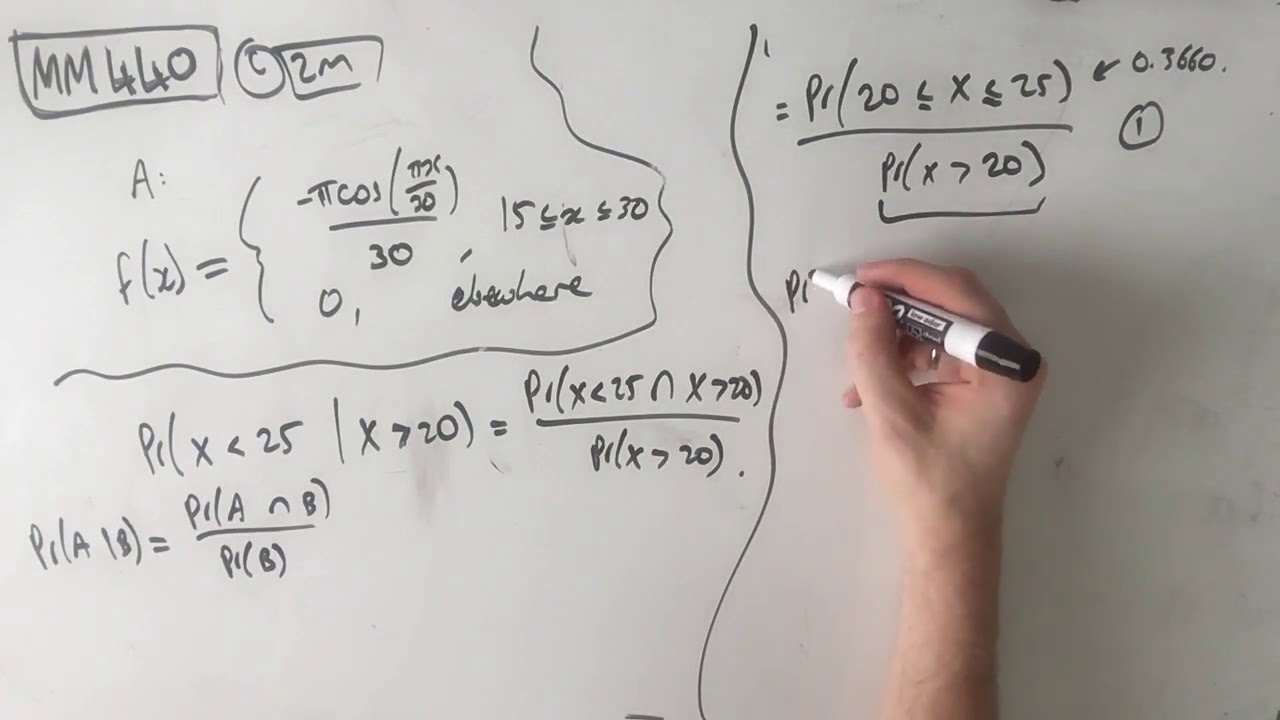 MM440 c 2m
A:
f(x) = { -πcos(πx/30)/30 , 15 ≤ x ≤ 30
0, elsewhere
Pr(X < 25 | X > 20) = Pr(X < 25 ∩ X > 20)/Pr(X > 20).
Pr(A | B) = Pr(A ∩ B)/Pr(B)
= Pr(20 ≤ X ≤ 25)/Pr(X > 20) ← 0.3660.
①
Pr